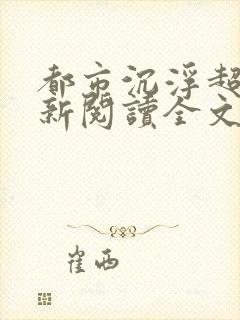 都市沉浮超
新閱讀全文
崔西